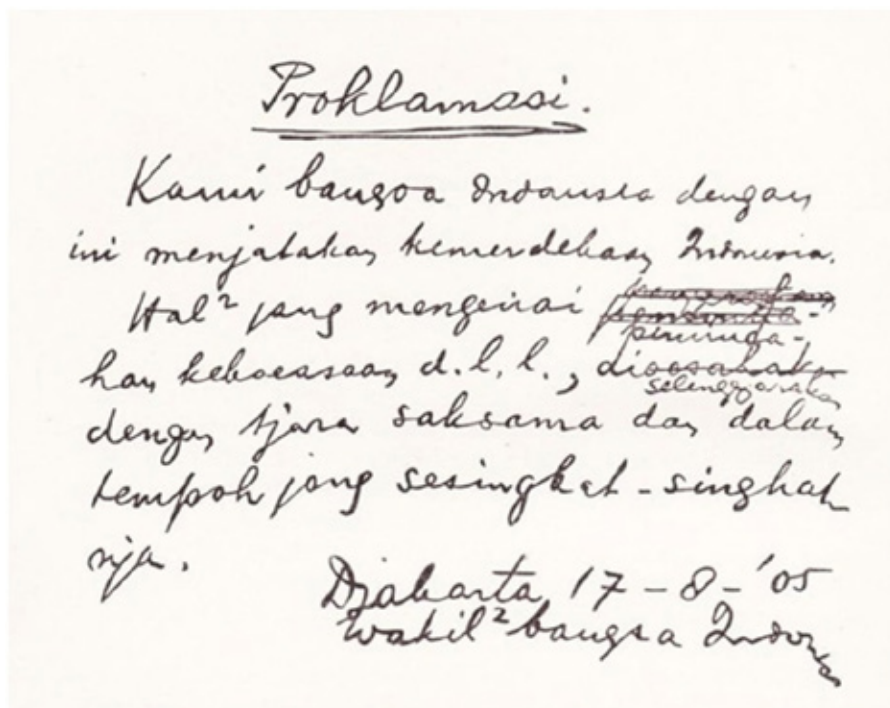 Proklamasi.
Kami bangsa Indonesia dengan
ini menjatakan kemerdekaan Indonesia.
Hal² jang mengenai
peminda-
han keboeasaan d.l.l., dioesahakan
selenggarakan
dengan tjara saksama dan dalam
tempoh jang sesingkat-singkat
nja.
Djakarta 17-8-'05
Wakil² bangsa Indon